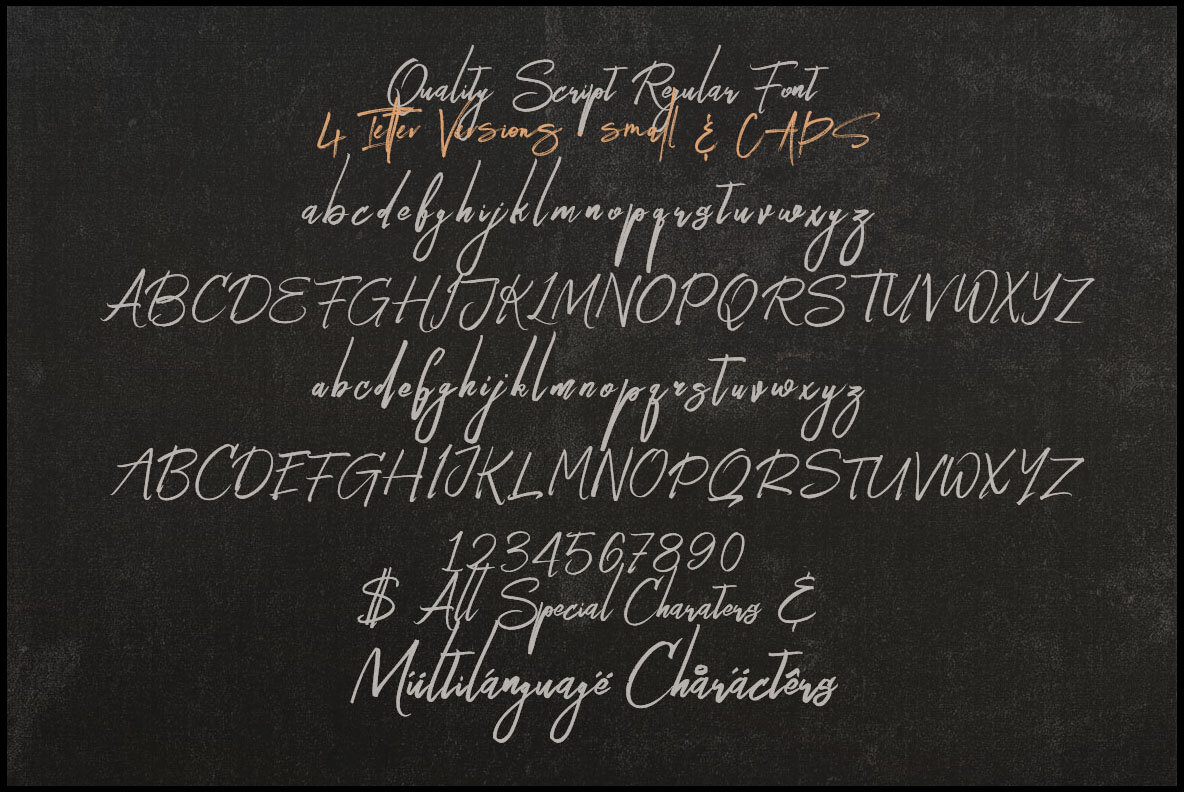 Quality Script Regular Font
4 letter Versions . small & CAPS
abcdefghijklmnopqrstuvwxyz
ABCDEFGHIJKLMNOPQRSTUVWXYZ
abcdefghijklmnopqrstuvwxyz
ABCDEFGHIJKLMNOPQRSTUVWXYZ
1234567890
$ All Special Charaters &
Múltilánguagé Chåräctêrs